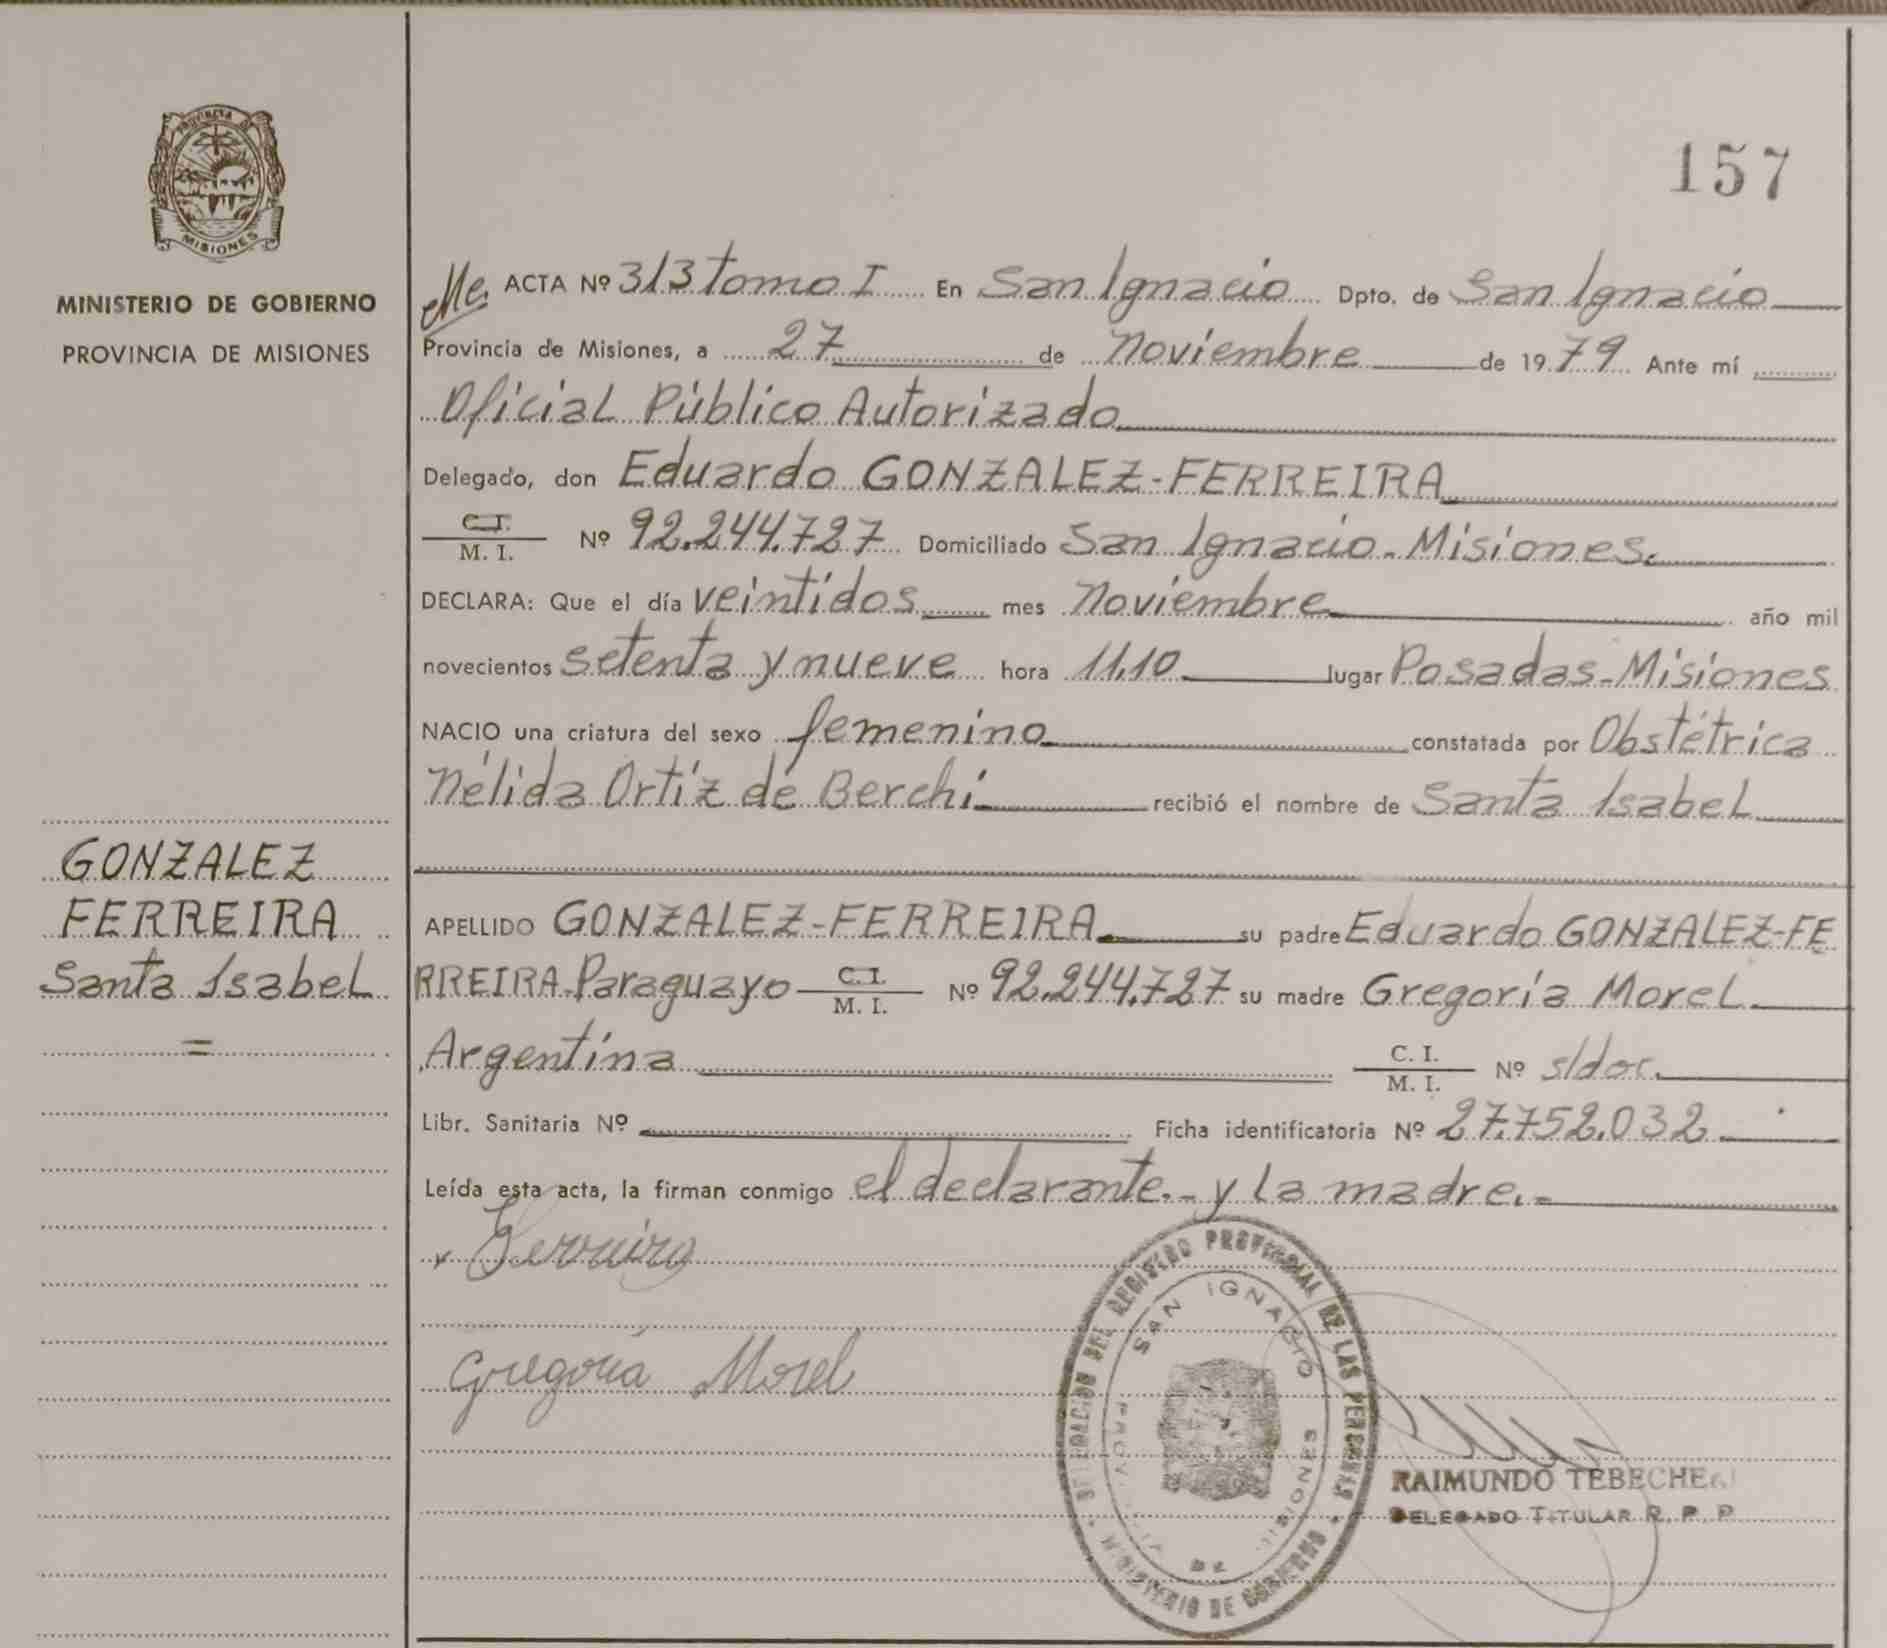 Provincia de
MISIONES
MINISTERIO DE GOBIERNO
PROVINCIA DE MISIONES
GONZALEZ
FERREIRA
Santa Isabel
=
157
ACTA Nº 313 tomo I En San Ignacio Dpto. de San Ignacio
Provincia de Misiones, a 27 de Noviembre de 1979 Ante mí
Oficial Público Autorizado
Delegado, don Eduardo GONZALEZ-FERREIRA
C.I.
M. I. Nº 92.244.727 Domiciliado San Ignacio-Misiones.
DECLARA: Que el día veintidos mes Noviembre año mil
novecientos setenta y nueve hora 11,10 lugar Posadas-Misiones
NACIO una criatura del sexo femenino constatada por Obstétrica
Nélida Ortíz de Berchi recibió el nombre de Santa Isabel
APELLIDO GONZALEZ-FERREIRA su padre Eduardo GONZALEZ-FE
RREIRA-Paraguayo C.I.
M. I. Nº 92.244.727 su madre Gregoría Morel
Argentína C. I.
M. I. Nº s/doc.
Libr. Sanitaria Nº Ficha identificatoria Nº 27.752.032
Leída esta acta, la firman conmigo el declarante.- y la madre.-
Gregoria Morel
DELEGACION DEL REGISTRO PROVINCIAL DE LAS PERSONAS
SAN IGNACIO
DE MISIONES
MINISTERIO DE GOBIERNO
RAIMUNDO TEBECHE
DELEGADO TITULAR R. P. P.